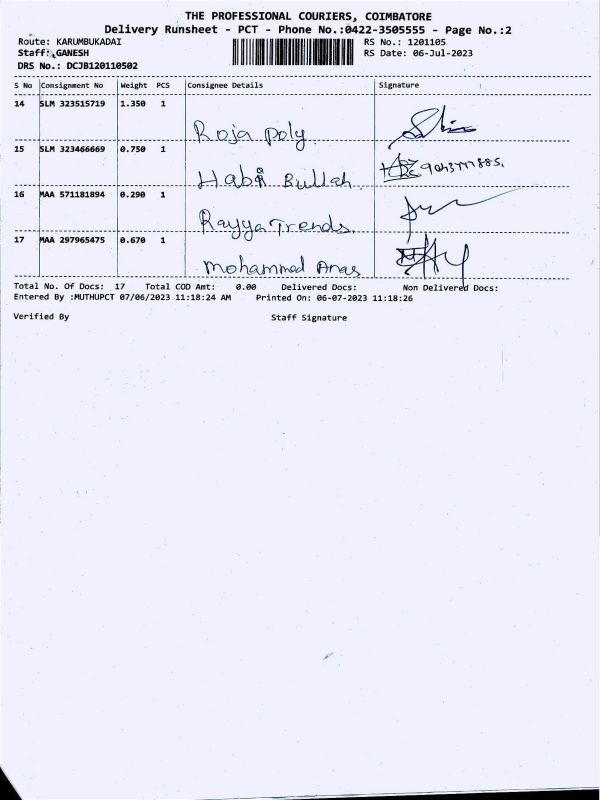 THE PROFESSIONAL COURIERS, COIMBATORE
Delivery Runsheet - PCT - Phone No.:0422-3505555 - Page No.:2
Route: KARUMBUKADAI RS No.: 1201105
Staff: GANESH RS Date: 06-Jul-2023
DRS No.: DCJB120110502
S No Consignment No Weight PCS Consignee Details Signature
14 SLM 323515719 1.350 1
Roja poly
15 SLM 323466669 0.750 1
Habi Bullah
16 MAA 571181894 0.290 1
Rayya Trends.
17 MAA 297965475 0.670 1
Mohammed Anas
Total No. Of Docs: 17 Total COD Amt: 0.00 Delivered Docs: Non Delivered Docs:
Entered By :MUTHUPCT 07/06/2023 11:18:24 AM Printed On: 06-07-2023 11:18:26
Verified By Staff Signature